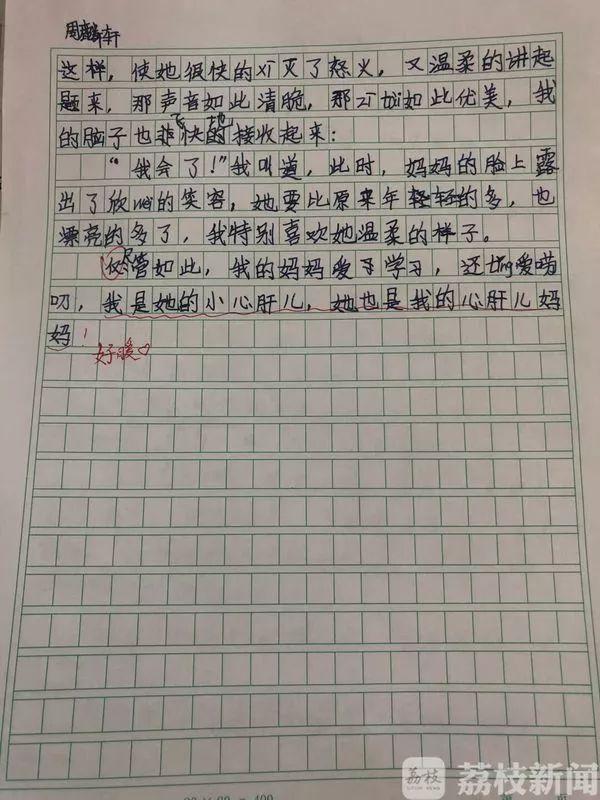 周麟轩
这样，使她很快的xī灭了怒火，又温柔的讲起
题来，那声音如此清脆，那zī tài如此优美，我
飞 地
的脑子也非快的接收起来：
“我会了！”我叫道，此时，妈妈的脸上露
出了欣wèi的笑容，她要比原来年轻轻的多，也
漂亮的多了，我特别喜欢她温柔的样子。
尽
管如此，我的妈妈爱学习，还tǐng爱唠
叨，我是她的小心肝儿，她也是我的心肝儿妈
妈！
好暖
荔枝
荔枝新闻